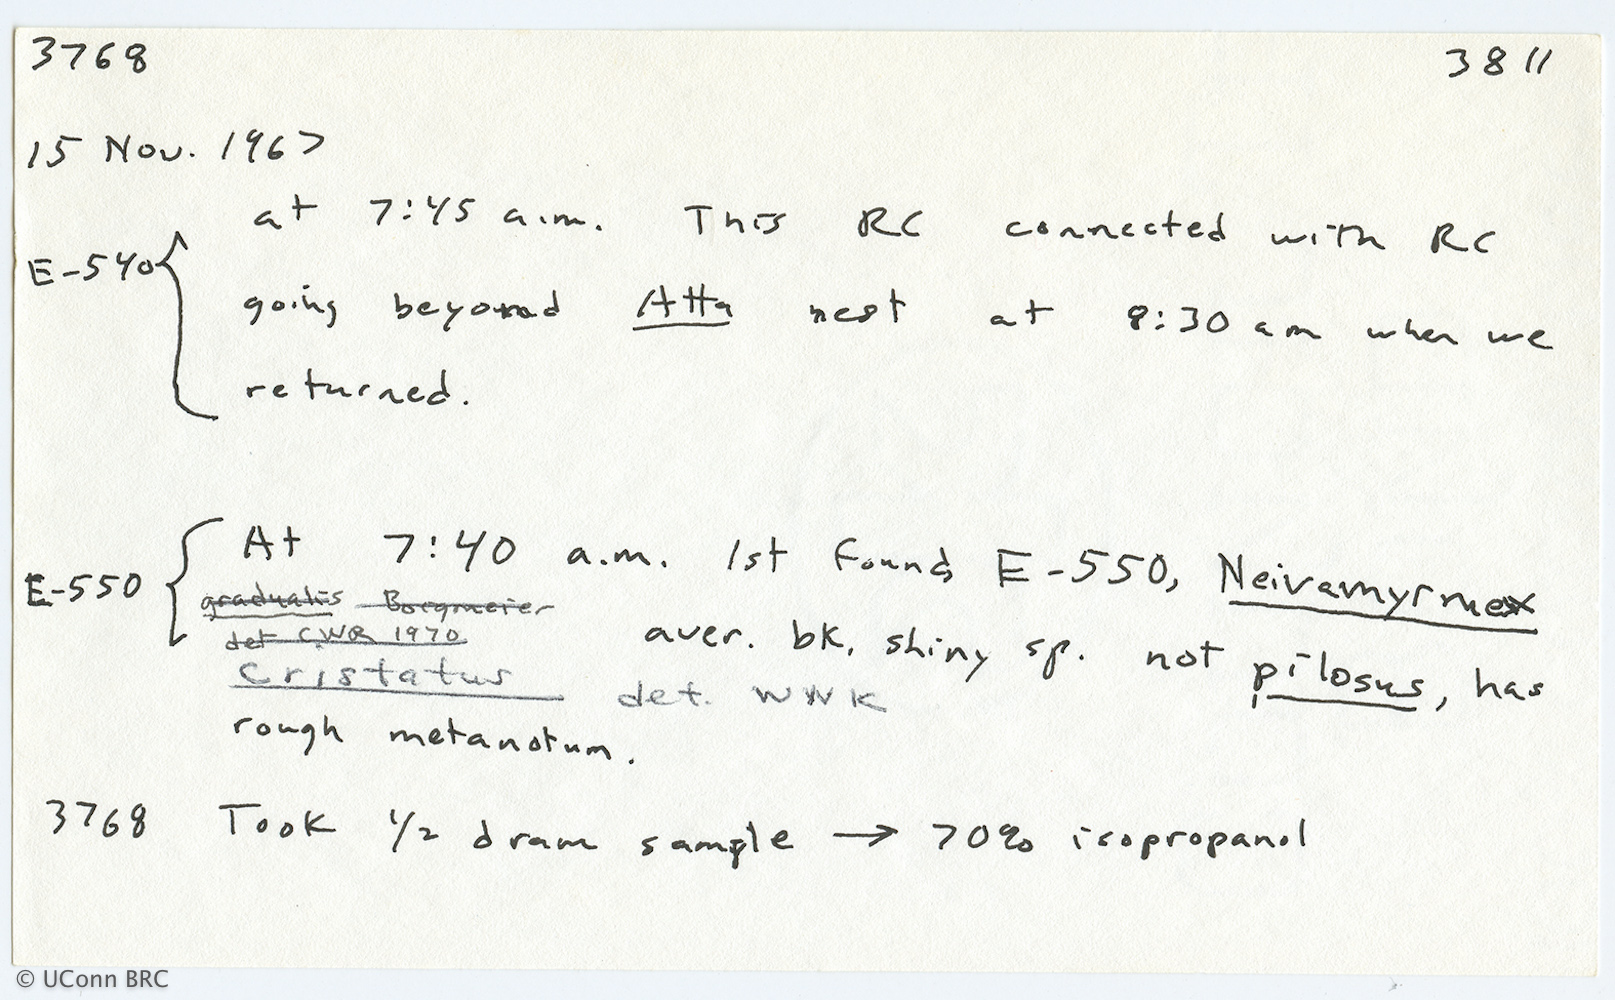 3768 3811
15 Nov. 1967
at 7:45 a.m. This RC connected with RC
E-540
going beyond Atta nest at 8:30 am when we
returned.
At 7:40 a.m. 1st found E-550, Neivamyrmex
E-550
gradualis Borgmeier
det CWR 1970
aver. bk, shiny sp. not pilosus, has
cristatus det. WWK
rough metanotum.
3768 Took 1/2 dram sample → 70% isopropanol
© UConn BRC